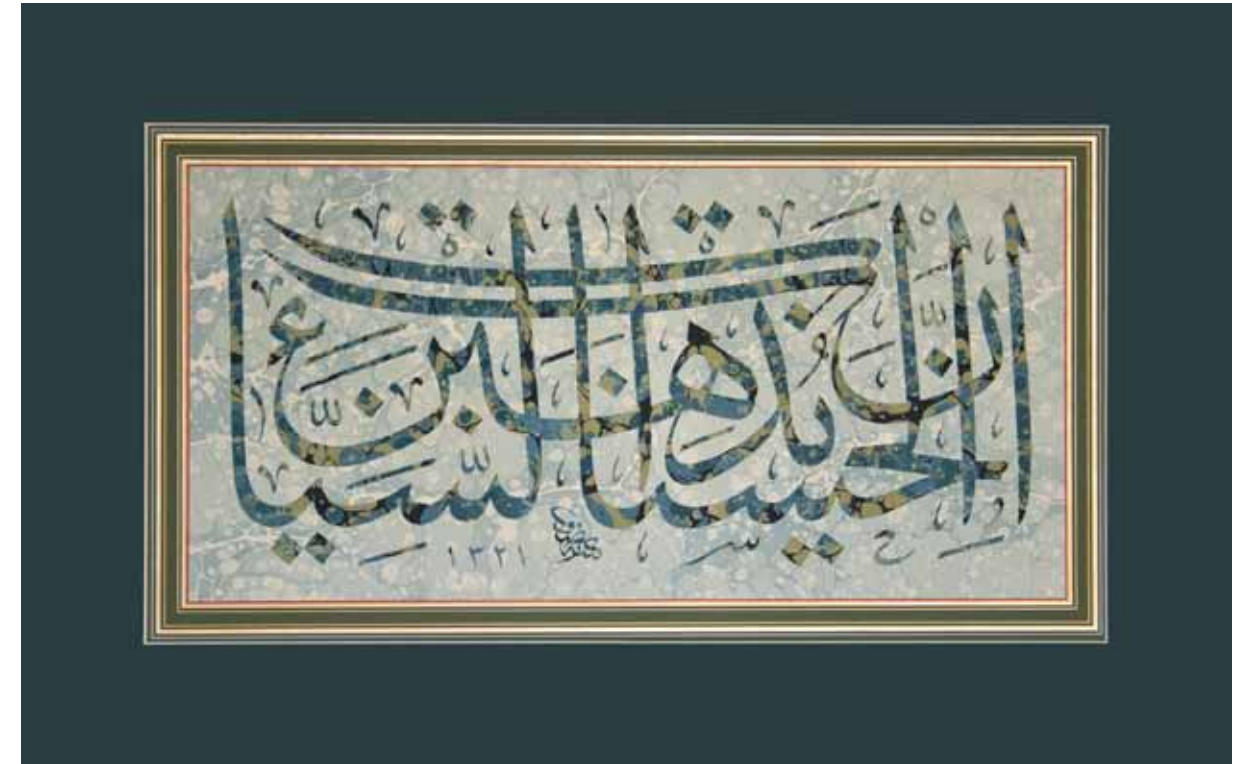 إِنَّ الْحَسَنَاتِ يُذْهِبْنَ السَّيِّئَاتِ
١٣٢١